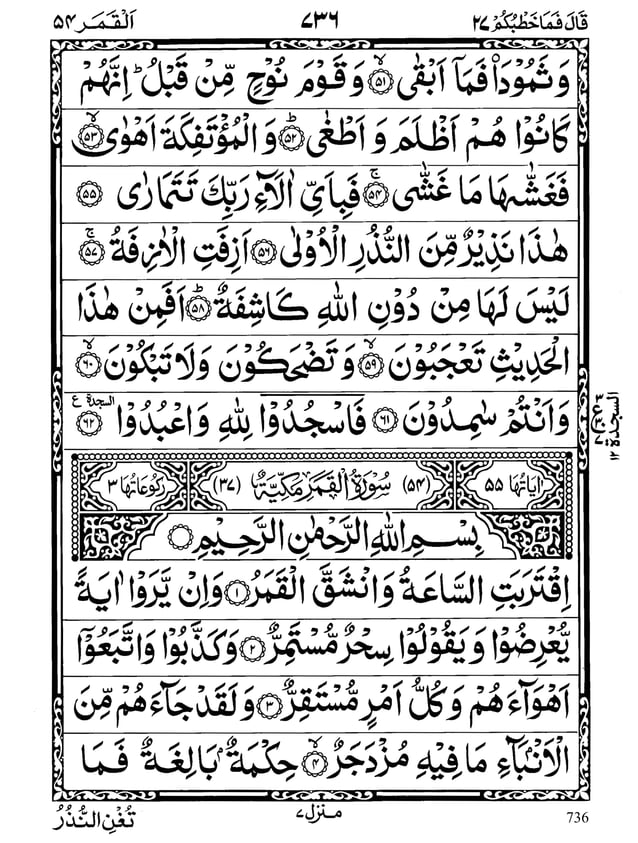 اَلْقَمَر ۵۴ ۷۳۶ قَالَ فَمَا خَطْبُكُمْ ۲۷
وَ ثَمُوْدَا۠ فَمَاۤ اَبْقٰى ۙ﴿۵۱﴾ وَ قَوْمَ نُوْحٍ مِّنْ قَبْلُ ؕ اِنَّهُمْ
كَانُوْا هُمْ اَظْلَمَ وَ اَطْغٰى ؕ﴿۵۲﴾ وَ الْمُؤْتَفِكَةَ اَهْوٰى ۙ﴿۵۳﴾
فَغَشّٰىهَا مَا غَشّٰى ۚ﴿۵۴﴾ فَبِاَىِّ اٰلَآءِ رَبِّكَ تَتَمَارٰى ﴿۵۵﴾
هٰذَا نَذِيْرٌ مِّنَ النُّذُرِ الْاُوْلٰى ﴿۵۶﴾ اَزِفَتِ الْاٰزِفَةُ ۚ﴿۵۷﴾
لَيْسَ لَهَا مِنْ دُوْنِ اللّٰهِ كَاشِفَةٌ ؕ﴿۵۸﴾ اَفَمِنْ هٰذَا
الْحَدِيْثِ تَعْجَبُوْنَ ۙ﴿۵۹﴾ وَ تَضْحَكُوْنَ وَ لَا تَبْكُوْنَ ۙ﴿۶۰﴾
وَ اَنْتُمْ سٰمِدُوْنَ ﴿۶۱﴾ فَاسْجُدُوْا لِلّٰهِ وَ اعْبُدُوْا ﴿۶۲﴾ السجدة ع
السجدة ۱۲
اٰيَاتُهَا ۵۵ (۵۴) سُوْرَةُ الْقَمَرِ مَكِّيَّةٌ (۳۷) رُكُوْعَاتُهَا ۳
بِسْمِ اللّٰهِ الرَّحْمٰنِ الرَّحِيْمِ
اِقْتَرَبَتِ السَّاعَةُ وَ انْشَقَّ الْقَمَرُ ﴿۱﴾ وَ اِنْ يَّرَوْا اٰيَةً
يُّعْرِضُوْا وَ يَقُوْلُوْا سِحْرٌ مُّسْتَمِرٌّ ﴿۲﴾ وَ كَذَّبُوْا وَ اتَّبَعُوْۤا
اَهْوَآءَهُمْ وَ كُلُّ اَمْرٍ مُّسْتَقِرٌّ ﴿۳﴾ وَ لَقَدْ جَآءَهُمْ مِّنَ
الْاَنْۢبَآءِ مَا فِيْهِ مُزْدَجَرٌ ۙ﴿۴﴾ حِكْمَةٌۢ بَالِغَةٌ فَمَا
تُغْنِ النُّذُرُ منزل ۷ 736